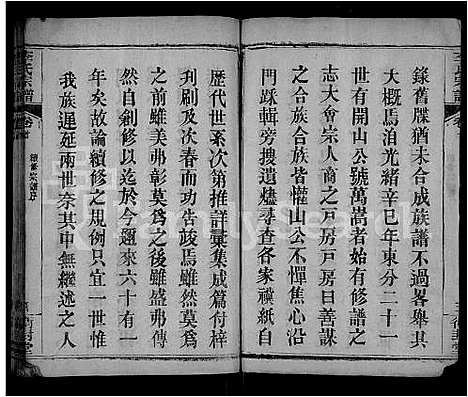 錄舊牒猶未合成族譜不過畧舉其
大概焉洎光緒辛巳年東分二十一
世有開山公號萬嵩者始有修譜之
志大會宗人商之戸房戸房曰善謀
及合族合族皆懽山公不憚焦心沿
門踩輯旁搜遺燼尋查各家禩紙自
歷代世系次第推詳彙集成篇付梓
刋刷及次春而功告竣焉雖然莫為
之前雖美弗彰莫為之後雖盛弗傳
然自剏修以迄於今迴來六十有一
年矣故論續修之規例只宜一世惟
我族遅延兩世奈其中無繼述之人
李氏宗譜
續修宗譜序
FamilySearch